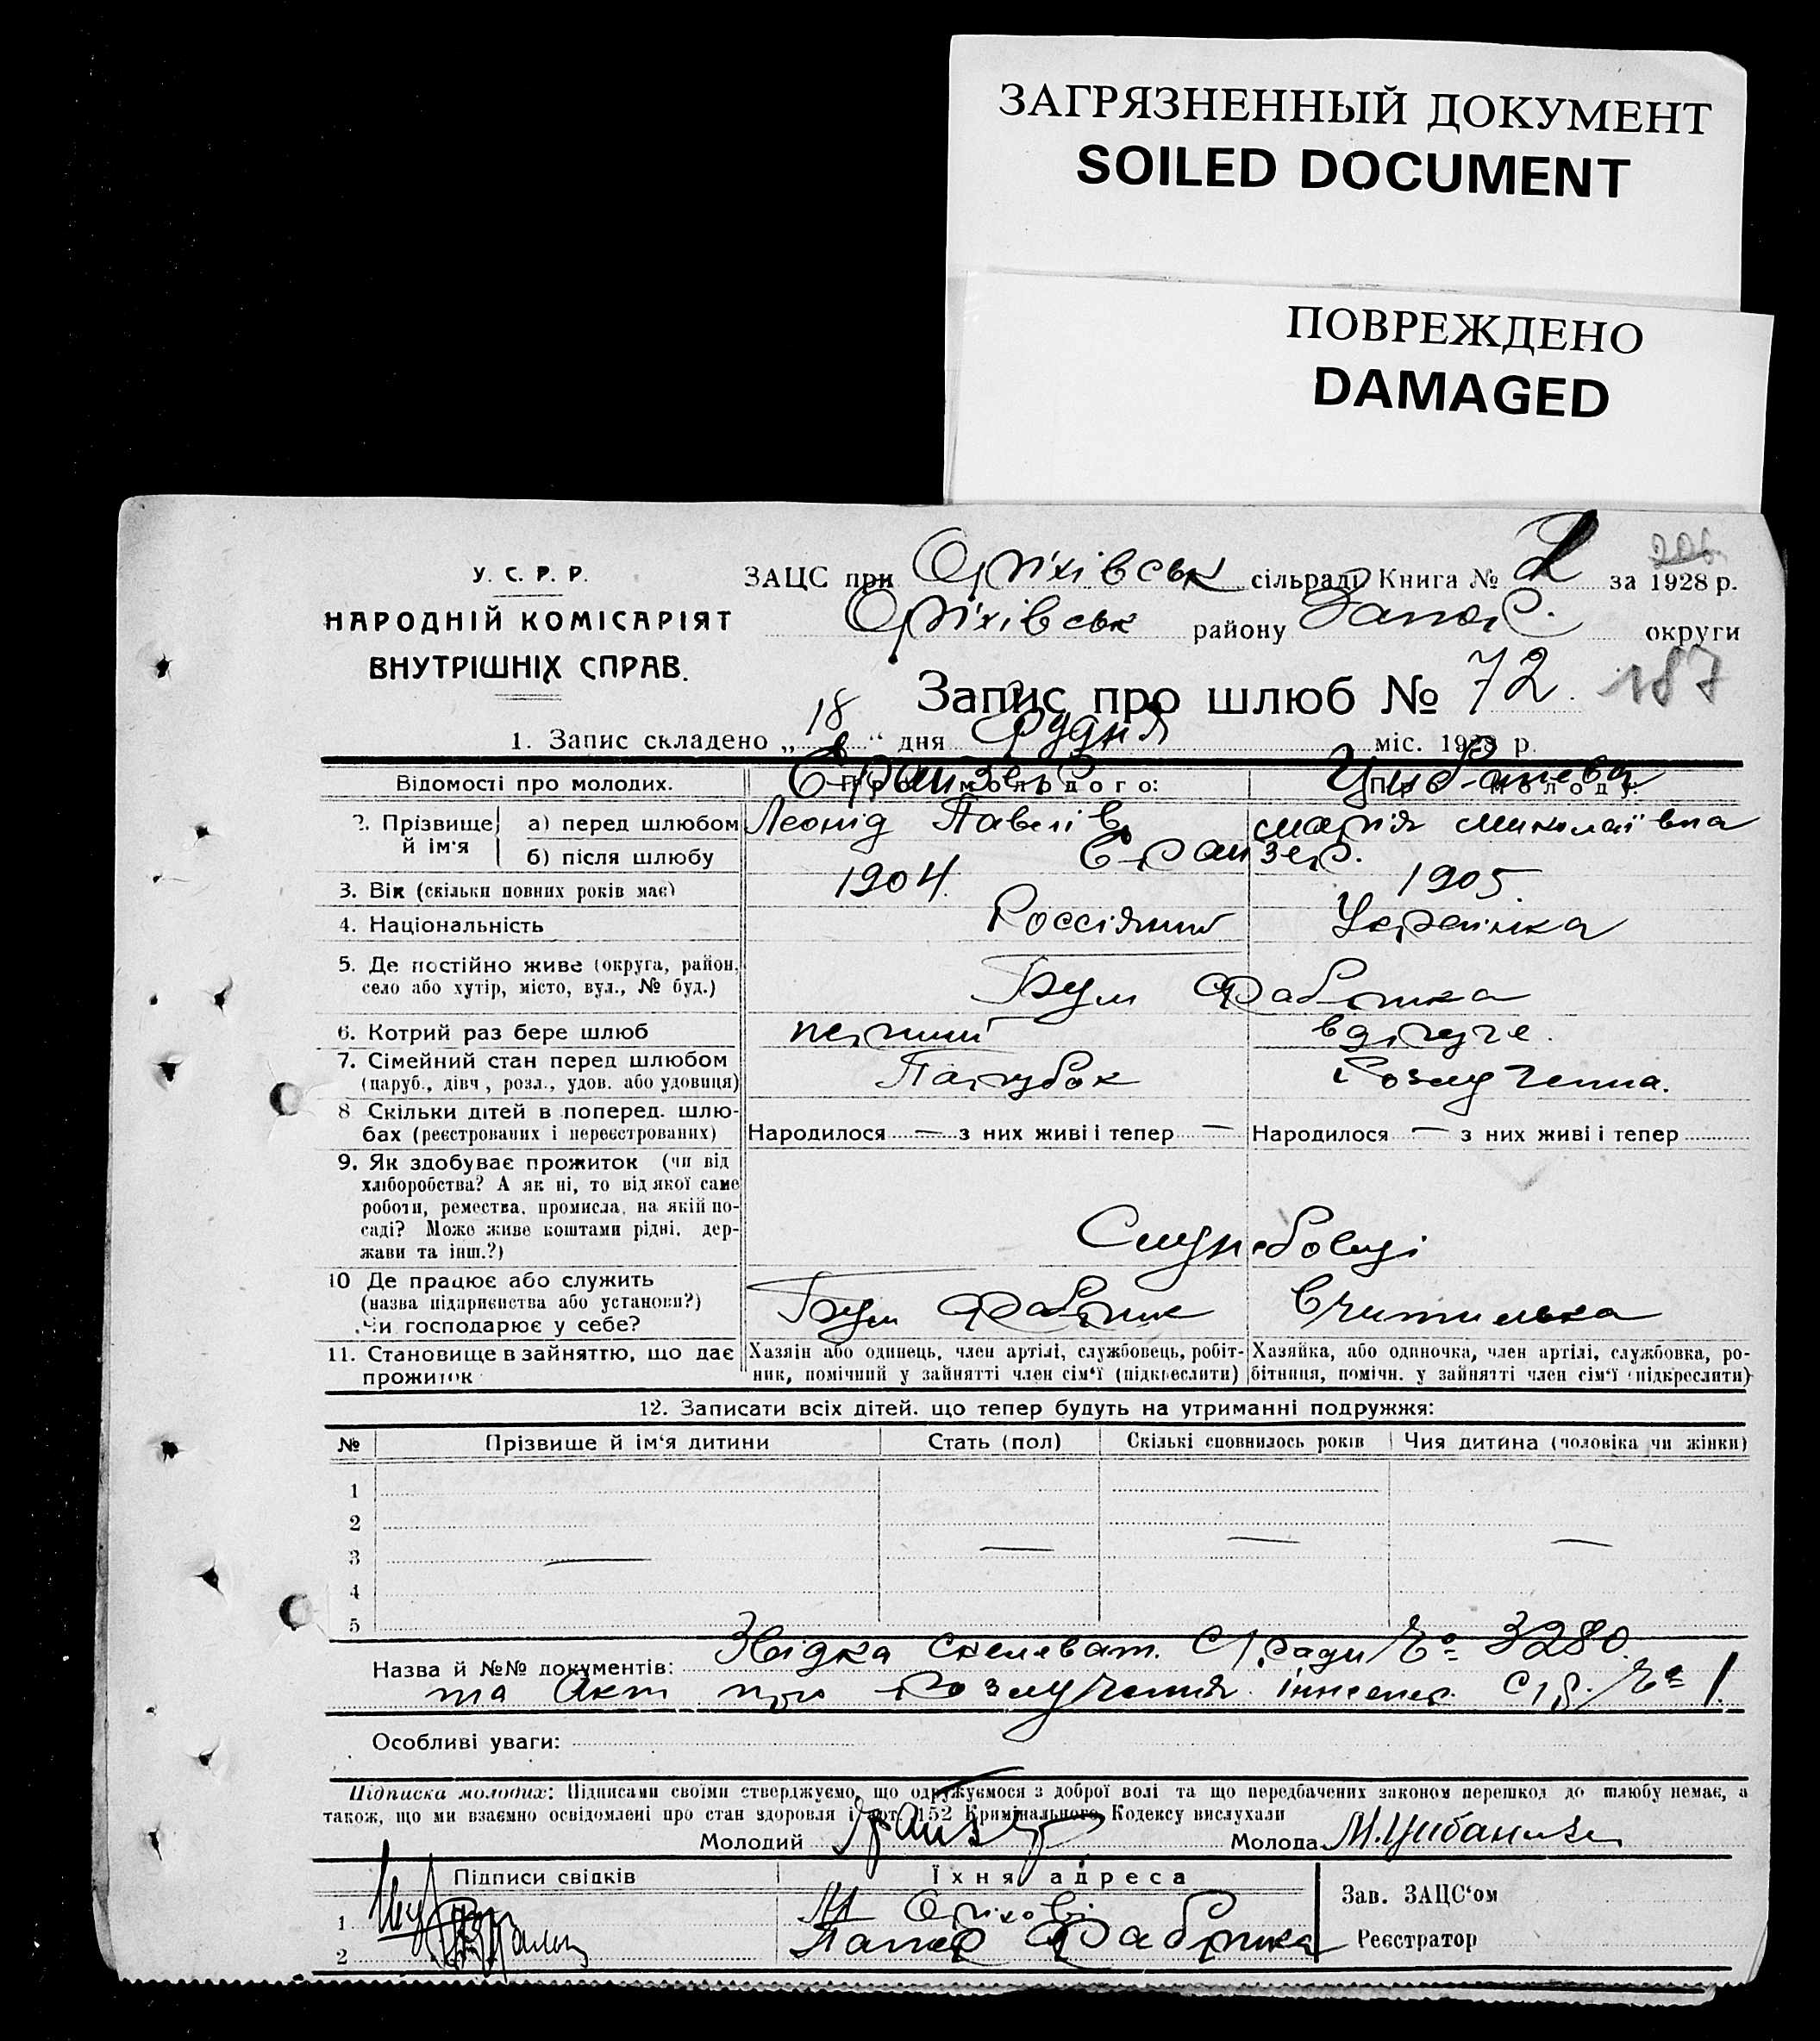 ЗАГРЯЗНЕННЫЙ ДОКУМЕНТ
SOILED DOCUMENT
ПОВРЕЖДЕНО
DAMAGED
У. С. Р. Р.
НАРОДНІЙ КОМІСАРІЯТ
ВНУТРІШНІХ СПРАВ.
ЗАЦС при Оріхівськ сільраді Книга № 2 за 1928 р.
Оріхівськ району Запоріз. округи
Запис про шлюб № 72 187
1. Запис складено „ 18 “ дня Грудня міс. 1928 р.
Відомості про молодих. Про молодого: Про молоду:
2. Прізвище й ім'я а) перед шлюбом Леонід Павлів Марія Миколаївна
б) після шлюбу
3. Вік (скільки повних років має) 1904. 1905.
4. Національність Россіянин Українка
5. Де постійно живе (округа, район,
село або хутір, місто, вул., № буд.) Бум Фабрика
6. Котрий раз бере шлюб перший вдруге.
7. Сімейний стан перед шлюбом
(паруб., дівч., розл., удов. або удовиця) Парубок Розлученна.
8 Скільки дітей в поперед. шлю-
бах (реєстрованих і нереєстрованих) Народилося — з них живі і тепер — Народилося — з них живі і тепер
9. Як здобуває прожиток (чи від
хліборобства? А як ні, то від якої саме
роботи, ремества, промисла, на якій по-
саді? Може живе коштами рідні, дер-
жави та інш.?) Службовці
10 Де працює або служить
(назва підприєнства або установи?)
Чи господарює у себе? Бум Фабрик Вчителька
11. Становище в зайняттю, що дає
прожиток
Хазяін або одинець, член артілі, службовець, робіт-
ник, помічний у зайнятті член сім'ї (підкреслити)
Хазяйка, або одиночка, член артілі, службовка, ро-
бітниця, помічн. у зайнятті член сім'ї (підкреслити)
12. Записати всіх дітей, що тепер будуть на утриманні подружжя:
№ Прізвище й ім'я дитини Стать (пол) Скількі сповнилось років Чия дитина (чоловіка чи жінки)
1
2
3 — — — —
4
5
Назва й №№ документів: Звідка Скелеват. С/ради № 3280.
та Акт про розлучення № 1.
Особливі уваги:
Підписка молодих: Підписами своїми стверджуємо, що одружуємося з доброї волі та що передбачених законом перешкод до шлюбу немає, а
також, що ми взаємно освідомлені про стан здоровля і арт. 152 Кримінального Кодексу вислухали
Молодий Молода М. Цибан
Підписи свідків Їхня адреса
Зав. ЗАЦС'ом
1 М Оріхові
2 Папер Фабрика Реєстратор